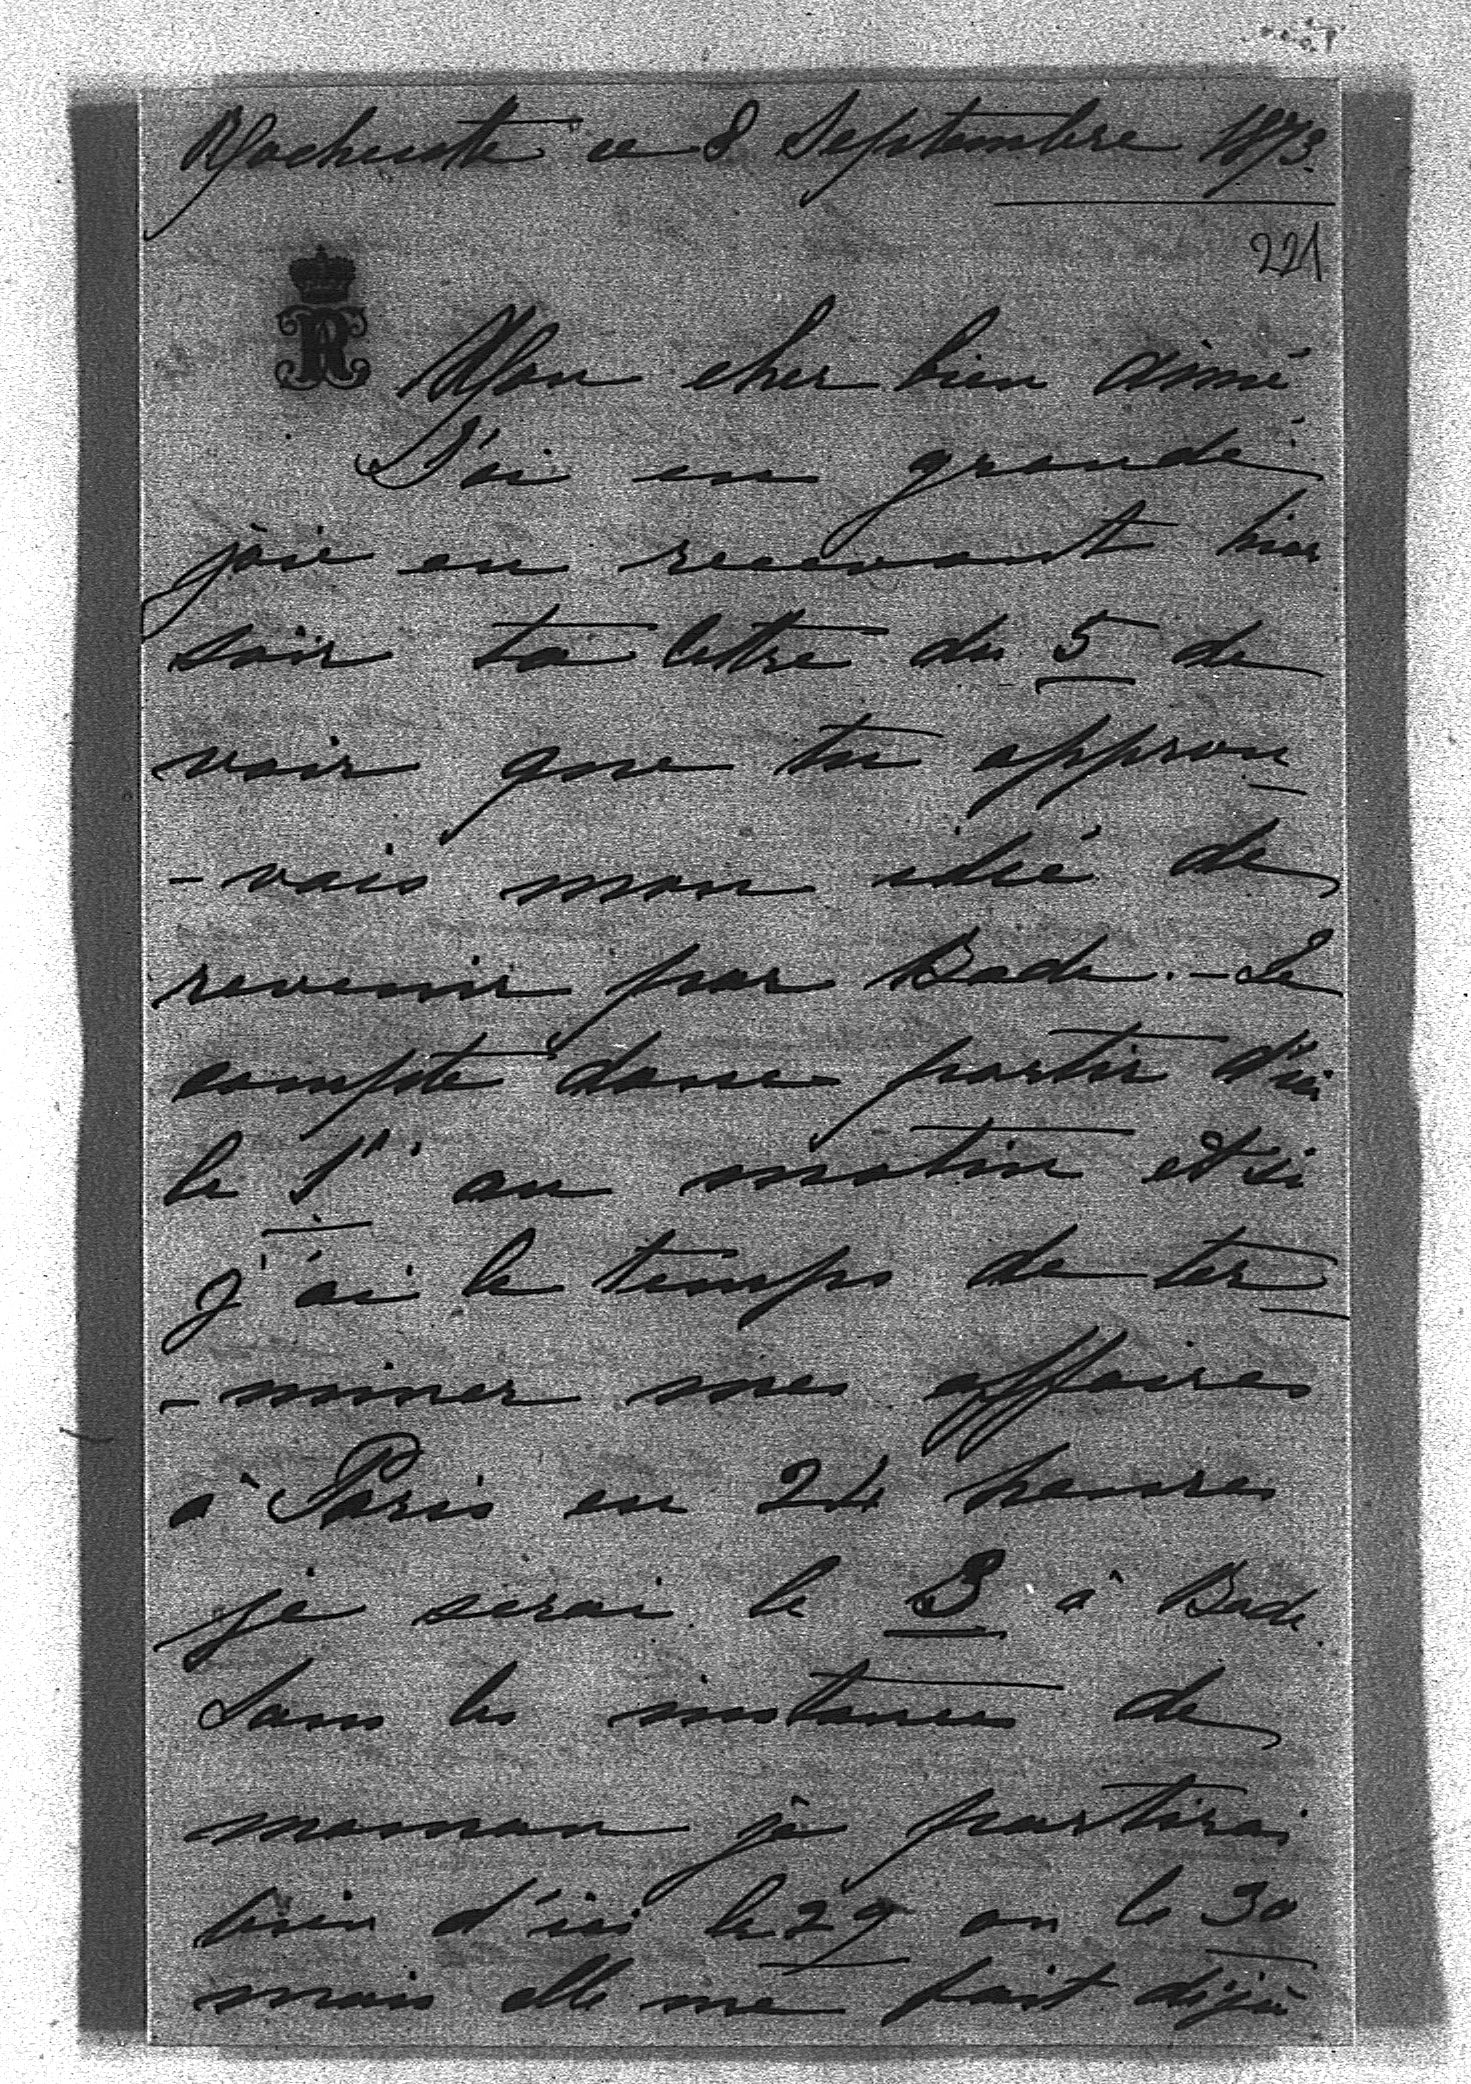 Rochecotte ce 8 Septembre 1873.
221
R
Mon cher bien aimé
J'ai eu grande
joie en recevant hier
soir ta lettre du 5 de
voir que tu approu
- vais mon idée de
revenir par Bade. - Je
compte donc partir d'ici
le 1er au matin et si
j'ai le temps de ter
- miner mes affaires
à Paris en 24 heures
je serai le 3 à Bade.
Sans les instances de
maman je partirai
bien d'ici le 29 ou le 30
mais elle me fait déjà